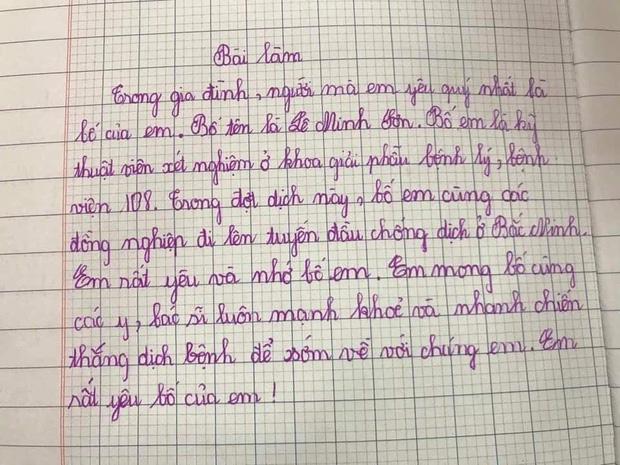 Bài làm
Trong gia đình, người mà em yêu quý nhất là
bố của em. Bố tên là Lê Minh Sơn. Bố em là kỹ
thuật viên xét nghiệm ở khoa giải phẫu bệnh lý, bệnh
viện 108. Trong đợt dịch này, bố em cùng các
đồng nghiệp đi lên tuyến đầu chống dịch ở Bắc Ninh.
Em rất yêu và nhớ bố em. Em mong bố cùng
các y, bác sĩ luôn mạnh khoẻ và nhanh chiến
thắng dịch bệnh để sớm về với chúng em. Em
rất yêu bố của em !